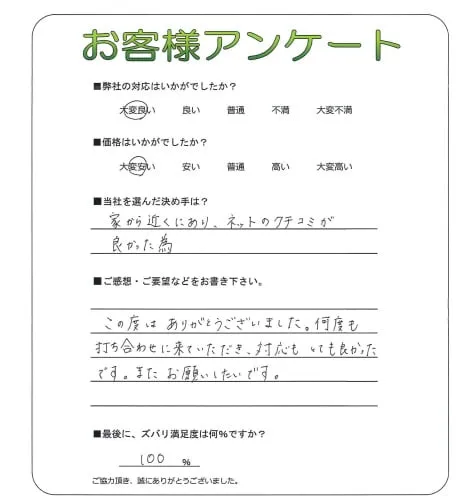 お客様アンケート
■弊社の対応はいかがでしたか?
大変良い 良い 普通 不満 大変不満
■価格はいかがでしたか?
大変安い 安い 普通 高い 大変高い
■当社を選んだ決め手は?
家から近くにあり、ネットのクチコミが
良かった為
■ご感想・ご要望などをお書き下さい。
この度は ありがとうございました。何度も
打ち合わせに来ていただき、対応も とても良かった
です。また お願いしたいです。
■最後に、ズバリ満足度は何%ですか?
100 %
ご協力頂き、誠にありがとうございました。